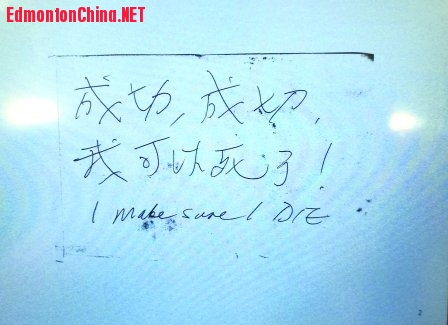 EdmontonChina.NET
成功, 成功,
我可以死了!
I make sure I DIE
2